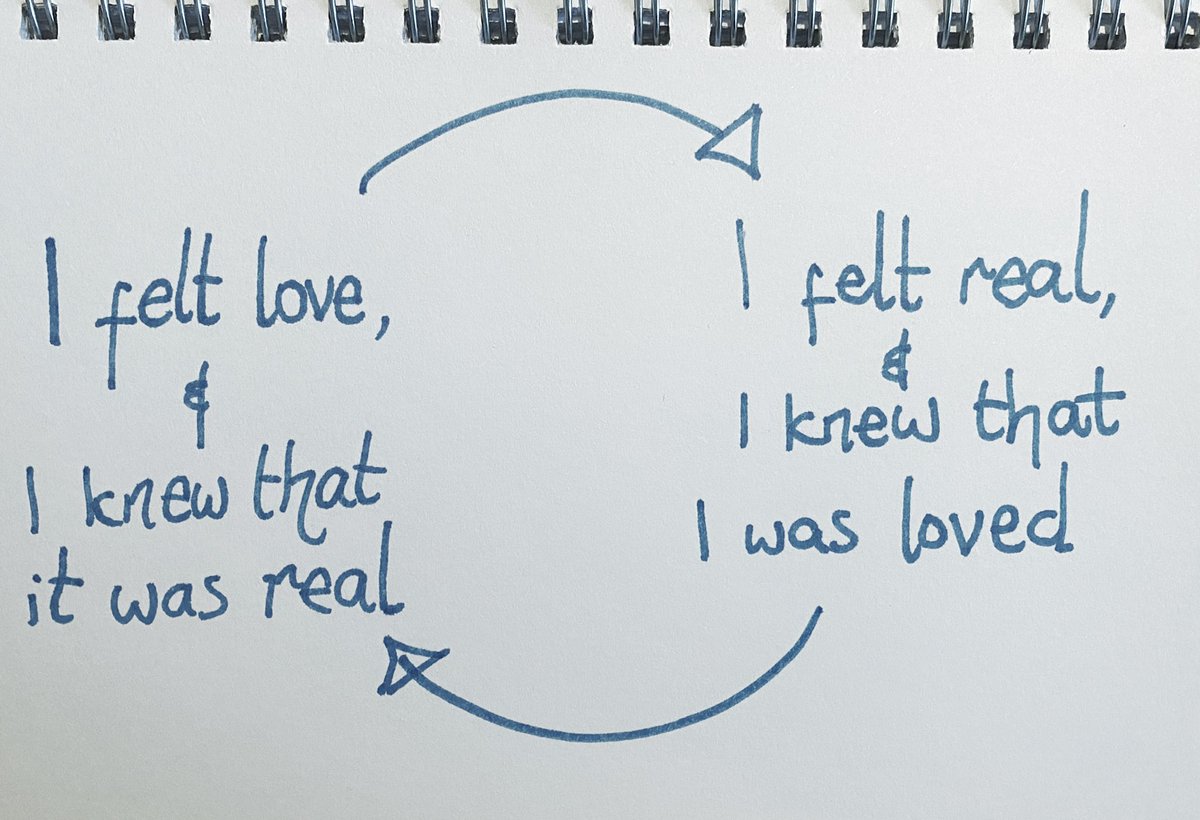 I felt love,
&
I knew that
it was real
I felt real,
&
I knew that
I was loved